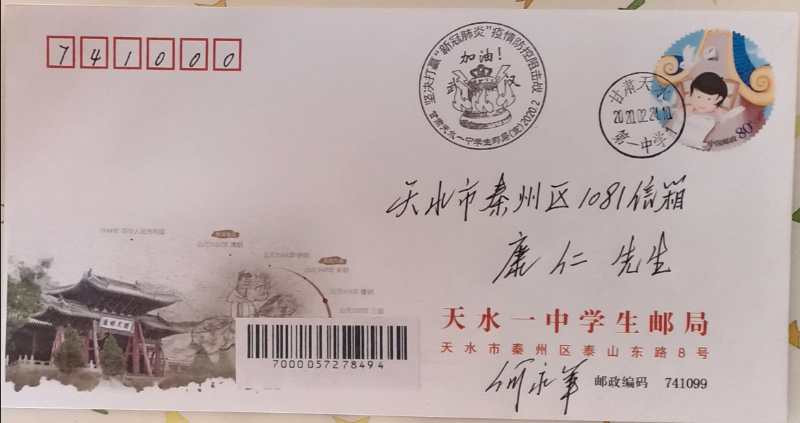 741000
坚决打赢“新冠肺炎”疫情防控阻击战
加油!
武汉
甘肃天水一中学生邮局(宣)2020.2
甘肃天水
2020.02.24.10
第一中学1
80分
中国邮政
天水市秦州区1081信箱
康仁 先生
天水一中学生邮局
天水市秦州区泰山东路8号
何永军 邮政编码 741099
7000057278494